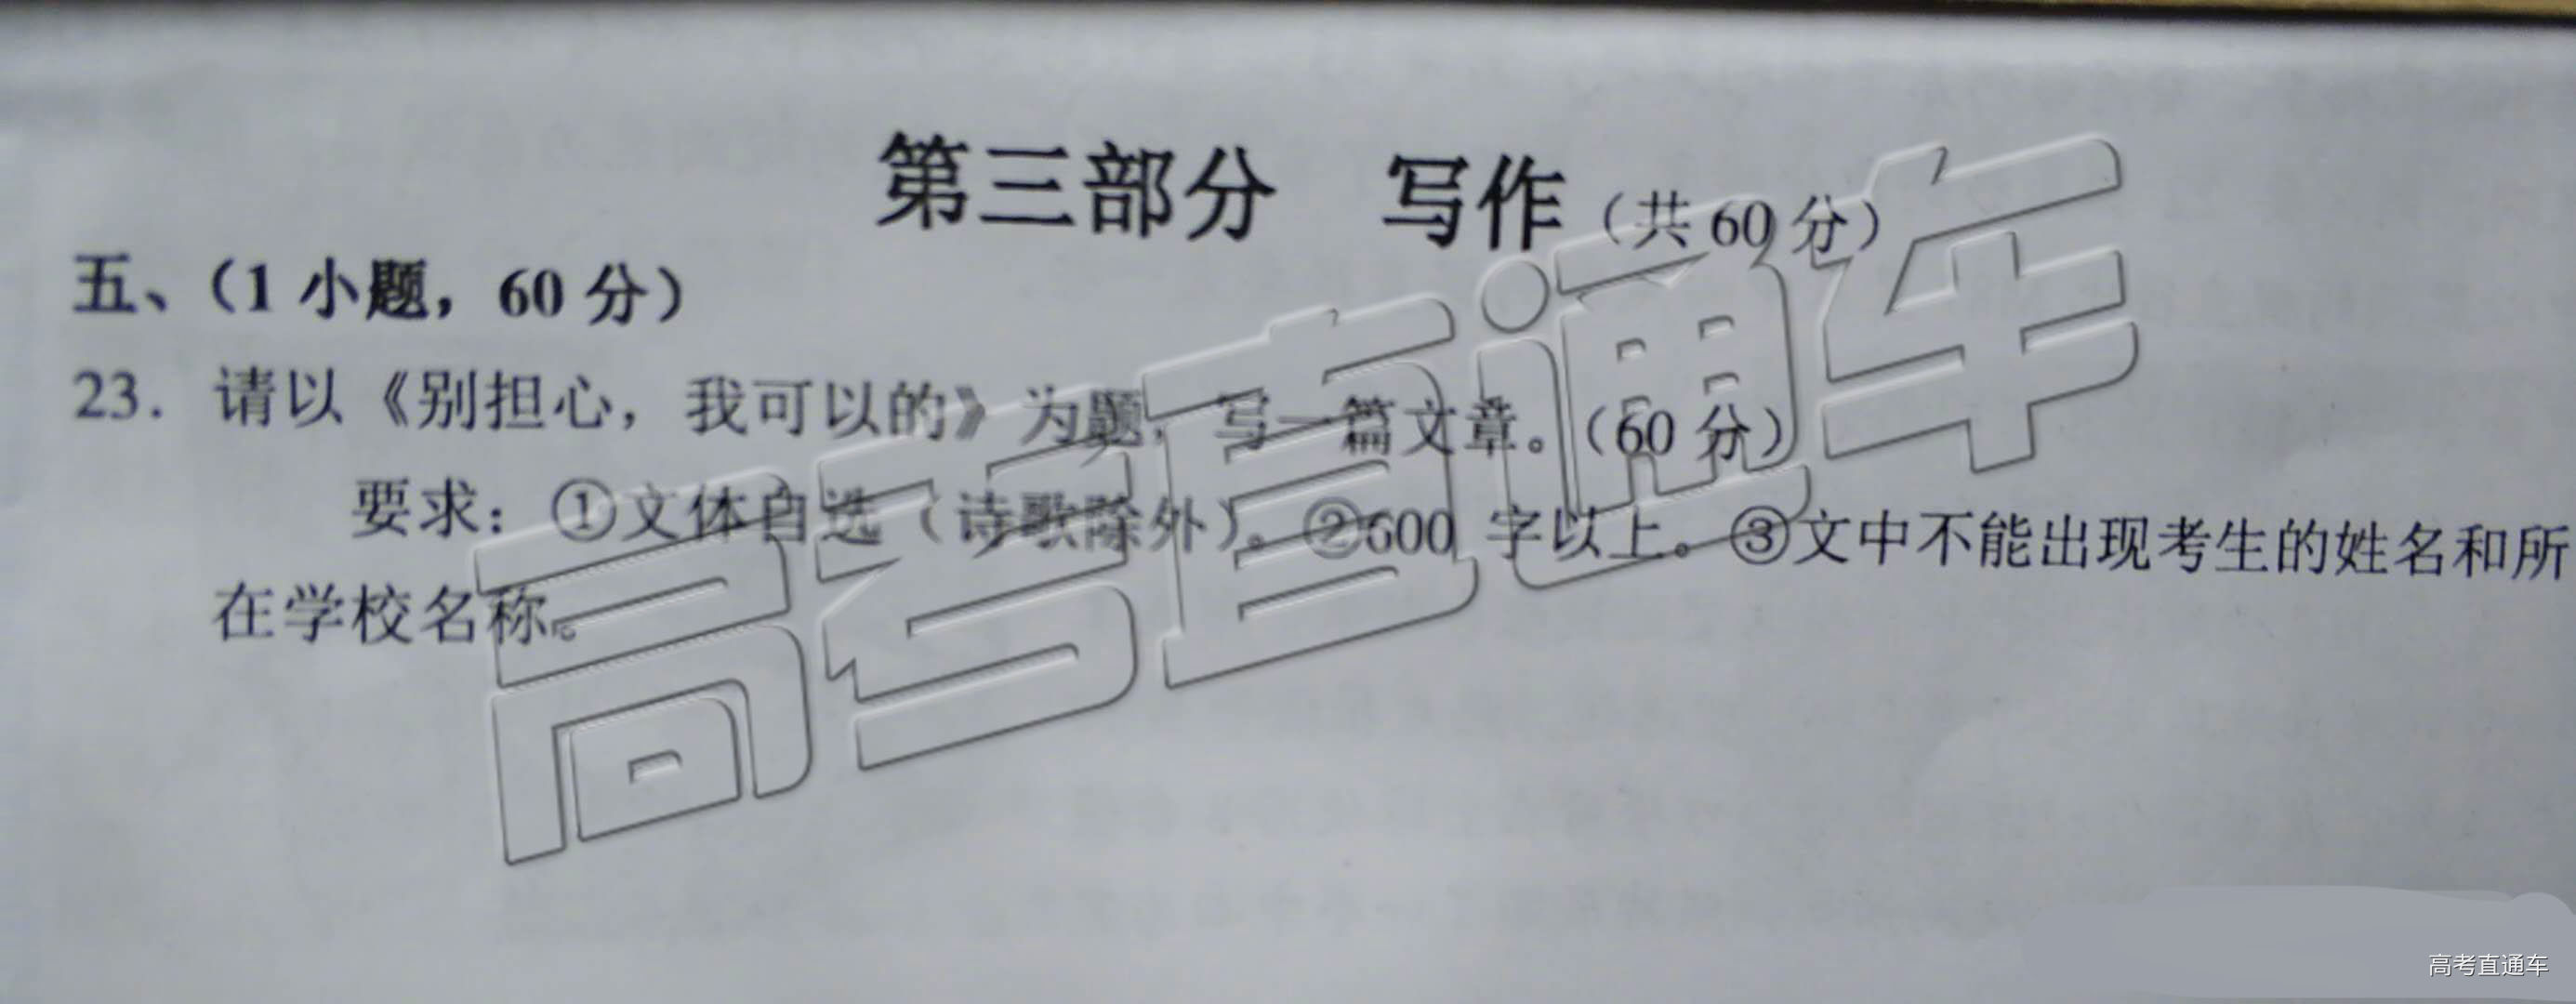 第三部分 写作（共 60 分）
五、（1 小题，60 分）
23. 请以《别担心，我可以的》为题，写一篇文章。（60 分）
要求：①文体自选（诗歌除外）。②600 字以上。③文中不能出现考生的姓名和所
在学校名称。
高考直通车
高考直通车